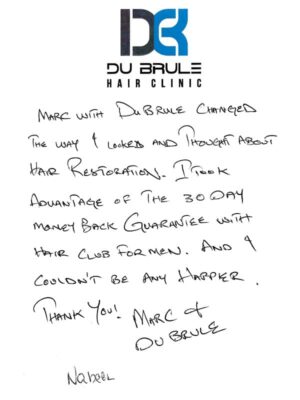 DU BRULE
HAIR CLINIC
MARC WITH DUBRULE CHANGED
THE WAY I LOOKED AND THOUGHT ABOUT
HAIR RESTORATION. I TOOK
ADVANTAGE OF THE 30 DAY
MONEY BACK GUARANTEE WITH
HAIR CLUB FOR MEN. AND I
COULDN'T BE ANY HAPPIER.
THANK YOU! MARC &
DU BRULE
Nabeel